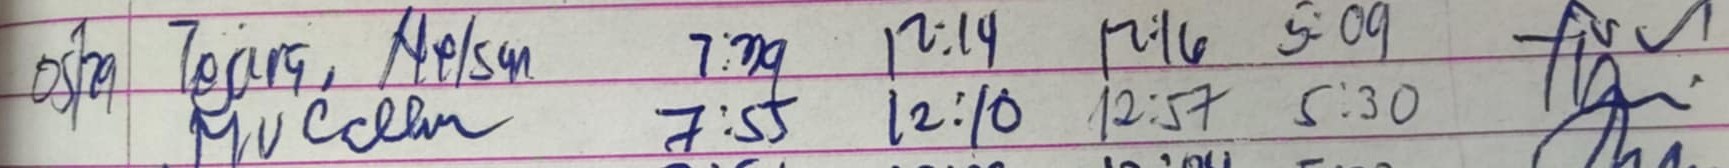 05/29 Tejara, Nelson 7:29 12:14 12:16 5:09
7:55 12:10 12:57 5:30